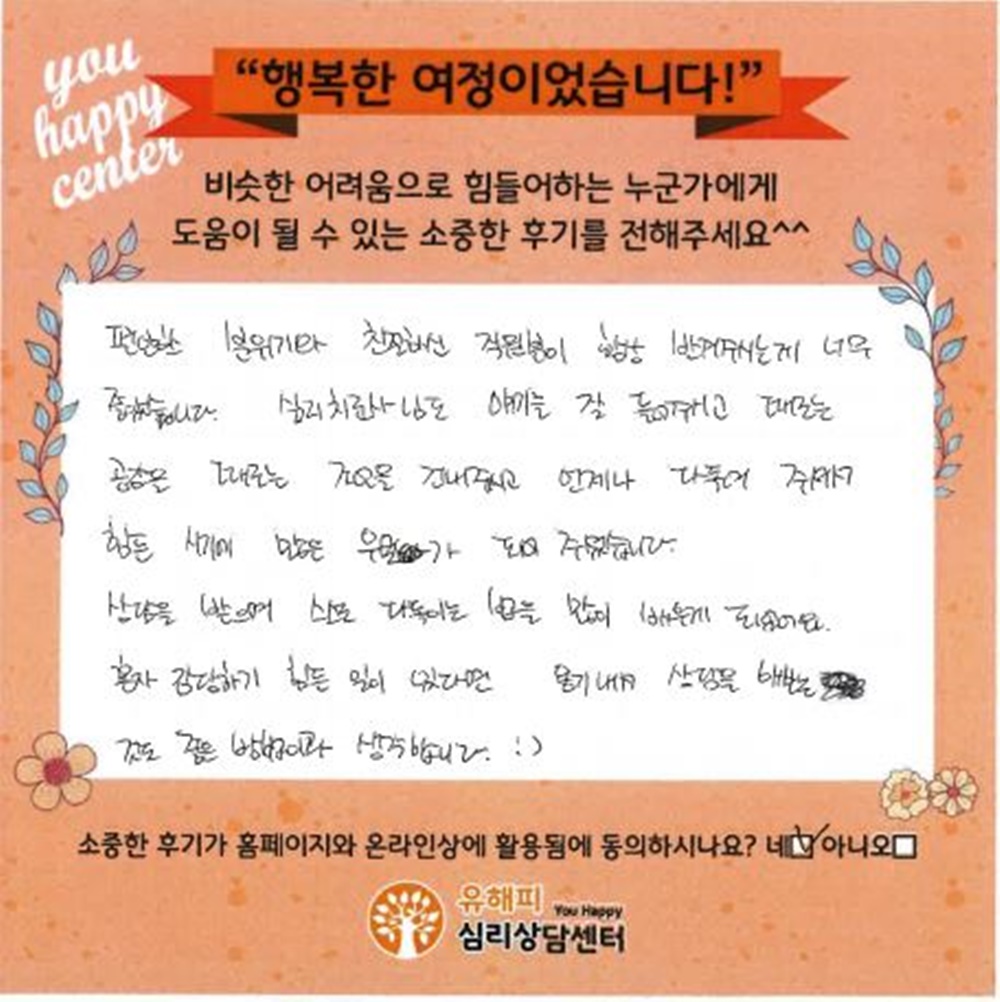 you
happy
center
“행복한 여정이었습니다!”
비슷한 어려움으로 힘들어하는 누군가에게
도움이 될 수 있는 소중한 후기를 전해주세요^^
편안한 분위기와 친절하신 직원분이 항상 반겨주시는게 너무
좋았습니다. 심리치료사님도 얘기를 잘 들어주시고 때로는
공감을 때로는 조언을 건내주시고 언제나 다독여 주셔서
힘든 시기에 많은 가 되어 주었습니다.
상담을 받으며 스스로 다독이는 법을 많이 배우게 되었어요.
혼자 감당하기 힘든 일이 있다면 용기내서 상담을 해보는
것도 좋은 방법이라 생각합니다. :)
소중한 후기가 홈페이지와 온라인상에 활용됨에 동의하시나요? 네☑ 아니오□
유해피 You Happy
심리상담센터